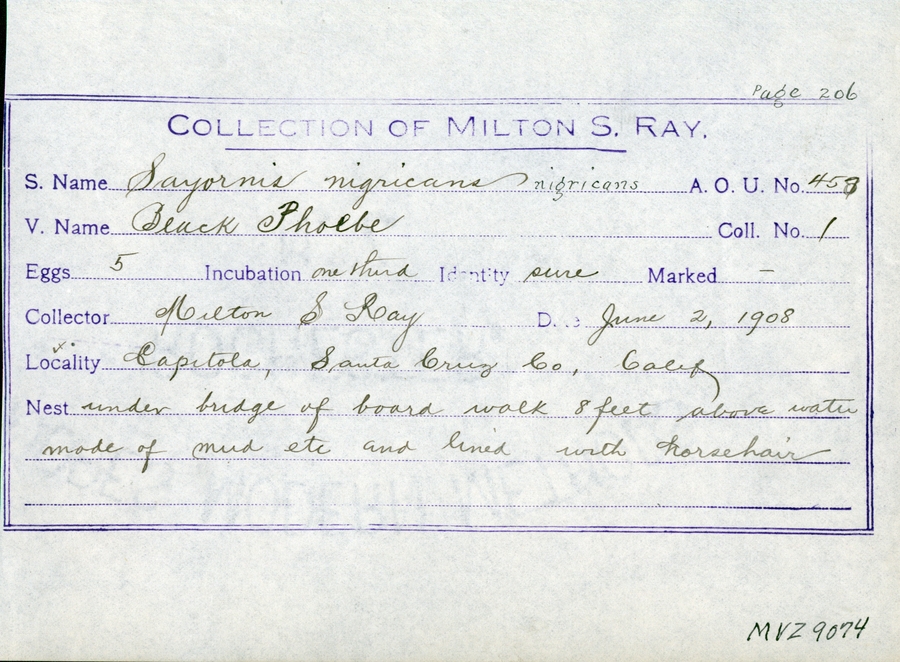 Page 206
COLLECTION OF MILTON S. RAY.
S. Name Sayornis nigricans nigricans A. O. U. No. 458
V. Name Black Phoebe Coll. No. 1
Eggs 5 Incubation one third Identity sure Marked —
Collector Milton S Ray D June 2, 1908
x
Locality Capitola, Santa Cruz Co, Calif
Nest under bridge of board walk 8 feet above water
made of mud etc and lined with horsehair
MVZ 9074